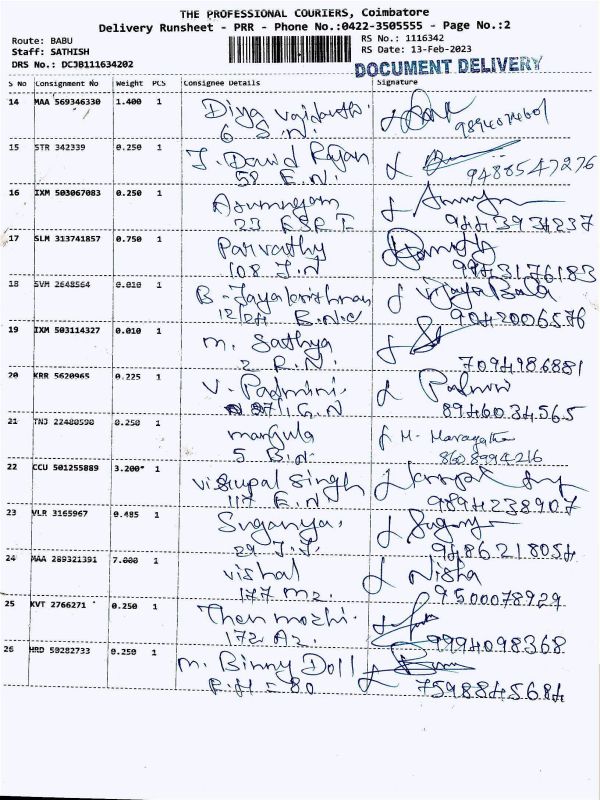 THE PROFESSIONAL COURIERS, Coimbatore
Delivery Runsheet - PRR - Phone No.:0422-3505555 - Page No.:2
Route: BABU
RS No.: 1116342
Staff: SATHISH
RS Date: 13-Feb-2023
DRS No.: DCJB111634202
DOCUMENT DELIVERY
S No Consignment No Weight PCS Consignee Details Signature
14 MAA 569346330 1.400 1
6 S.N.
15 STR 342339 0.250 1 J. David Rajan
58 E.N. 9488547276
16 IXM 503067083 0.250 1 Arumugam
23 ESRT 9443934237
17 SLM 313741857 0.750 1 Parvathy
108 J.N 9943176183
18 SVM 2648564 0.010 1 B. Jayakrishnan Vijaya Bala
12/24 9042006576
19 IXM 503114327 0.010 1 m. Sathya
2 R.N. 7094986881
20 KRR 5620965 0.225 1 V. Padmini.
G.N 8946034565
21 TNJ 22480590 0.250 1 M. Maragatha
5 B.N. 8608994216
22 CCU 501255889 3.200* 1 Singh
117 E.N. 9894238907
23 VLR 3165967 0.485 1 Suganya.
29 J.J. 9486218054
24 MAA 289321391 7.000 1 vishal Nisha
177 M2. 9500078929
25 KVT 2766271 0.250 1 Then mozhi.
172 A2. 9994098368
26 HRD 50282733 0.250 1 m. Binny Doll
P.H = 80 7598845684